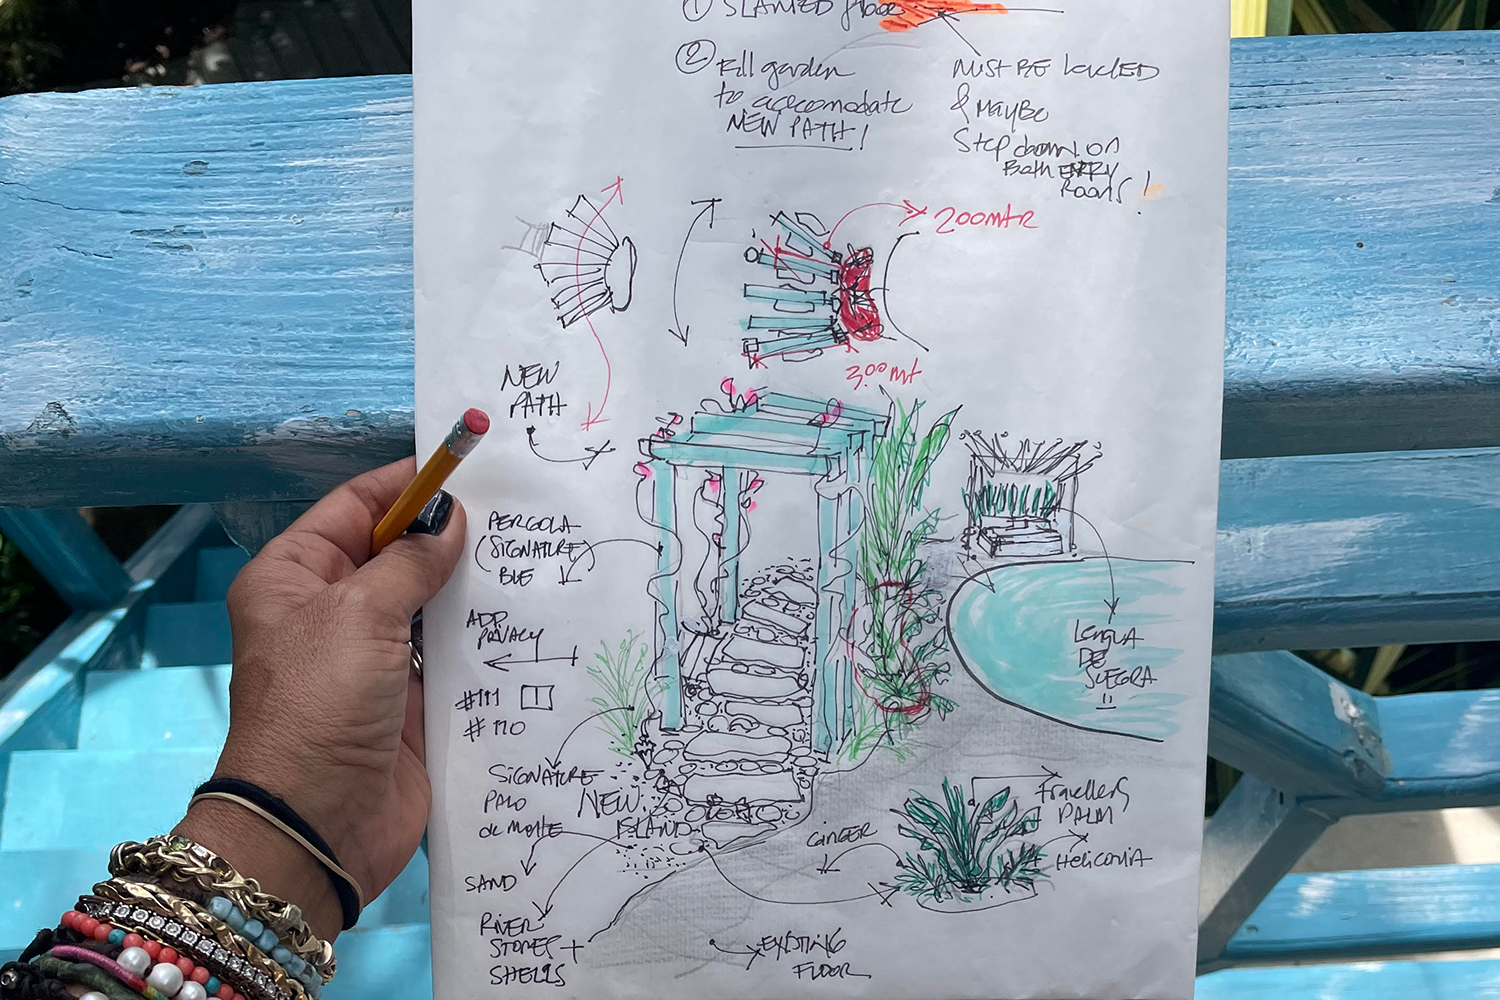 ①
② Fill garden
to accomodate
NEW PATH!
MUST BE
& MAYBE
Step down on
Both ENTRY
Rooms!
200mtr
3.00 mt
NEW
PATH
PERGOLA
(SIGNATURE)
BLE
ADD
PRIVACY
#111
#110
SIGNATURE
PALO
de Monte
NEW
ISLAND
SAND
RIVER
STONES +
SHELLS
LENGUA
DE
SUEGRA
Travellers
PALM
GINGER
+ Heliconia
EXISTING
FLOOR